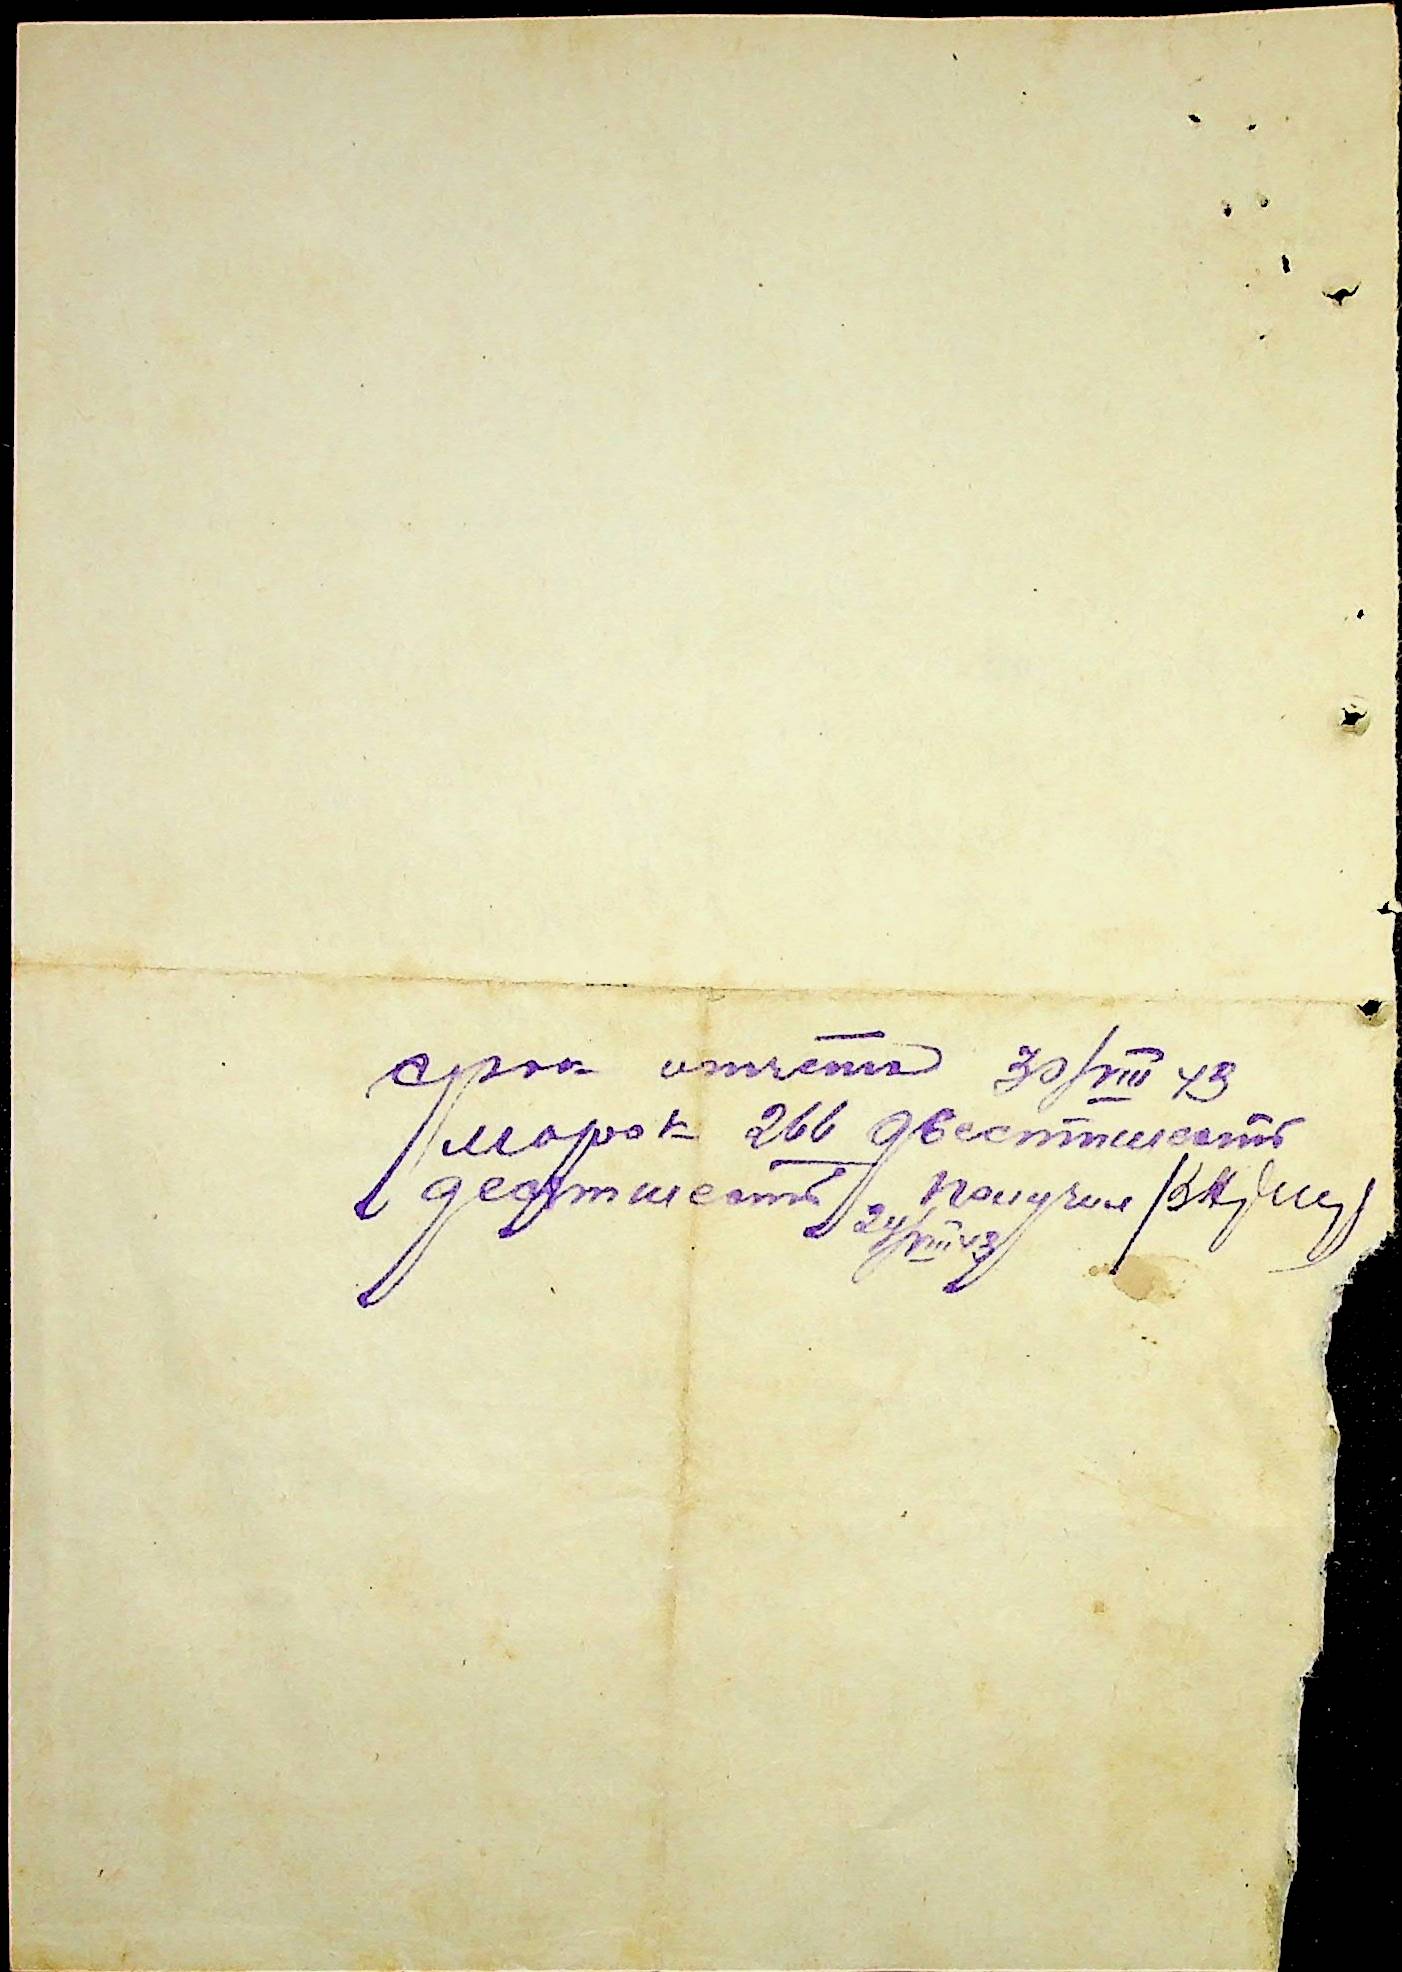 срок отчета 30/VIII 43
марок 266 двестишесть
десятшесть получил
24/VIII 43